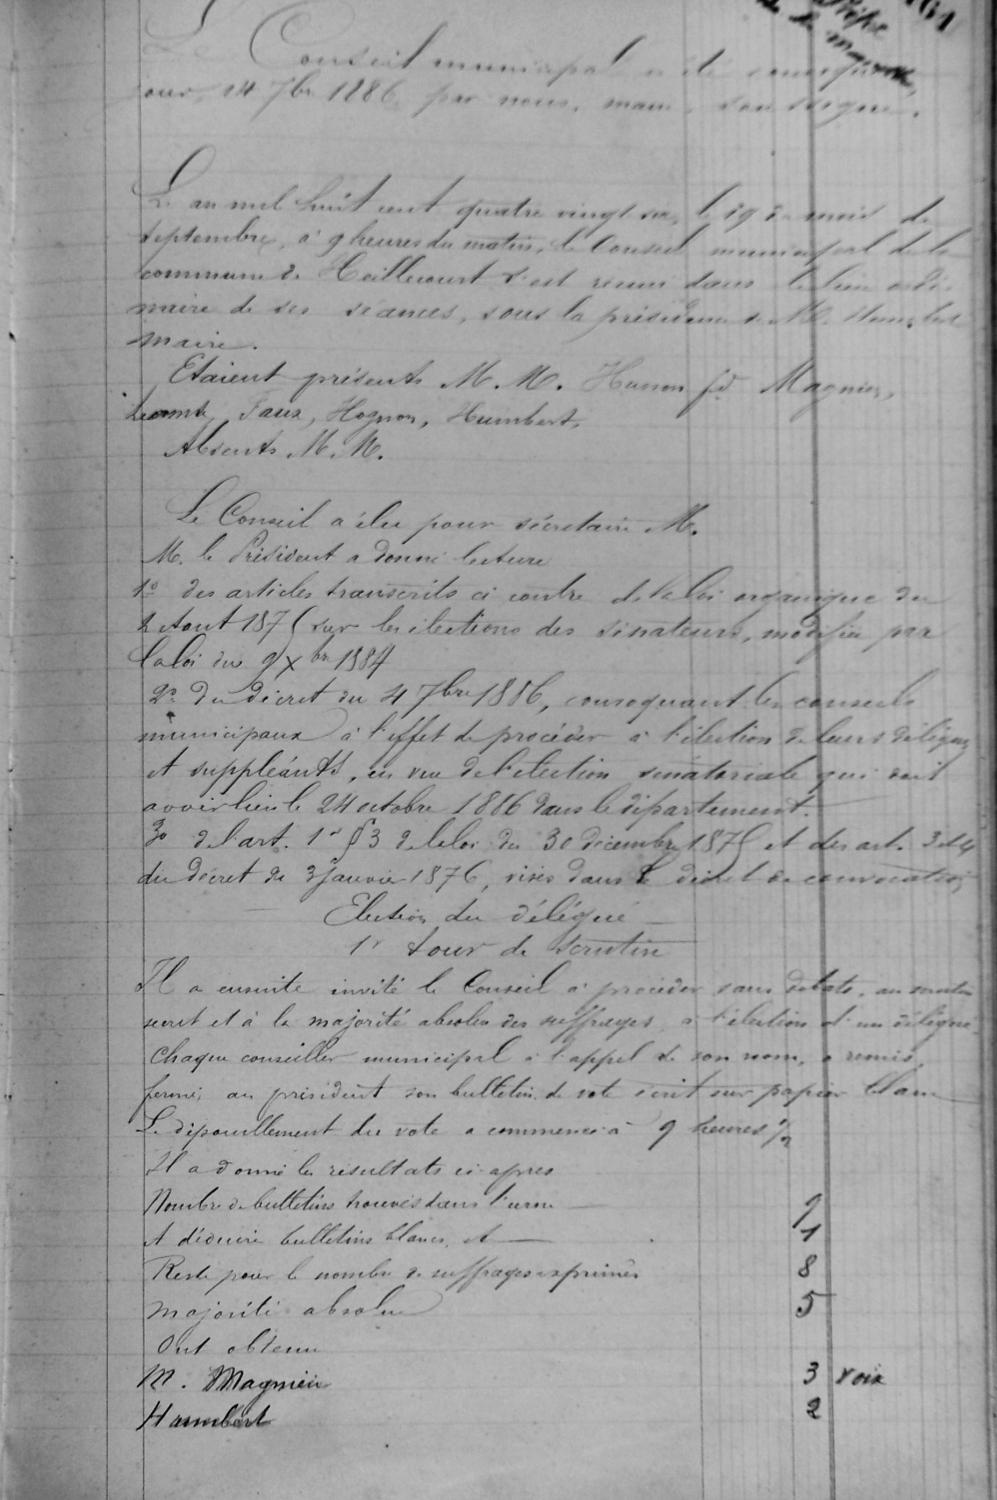 161
de la mairie
Le Conseil municipal a été convoqué
jour, 14 7bre 1886, par nous, maire, soussigné.
L'an mil huit cent quatre vingt six, le 19 du mois de
septembre, à 9 heures du matin, le Conseil municipal de la
commune de Heillecourt s'est réuni dans le lieu ordi-
naire de ses séances, sous la présidence de M. Humbert
maire.
Etaient présents M. M. Husson fd Magnien,
Lecomte, Faux, Hognon, Humbert.
Absents M. M.
Le Conseil a élu pour secrétaire M.
M. le Président a donné lecture
1o des articles transcrits ci contre de la loi organique du
2 Aout 1875 sur les élections des sénateurs, modifiée par
la loi du 9 Xbre 1884
2o Du décret du 4 7bre 1886, convoquant les conseils
municipaux à l'effet de procéder à l'élection de leurs délégués
et suppléants, en vue de l'élection sénatoriale qui doit
avoir lieu le 24 octobre 1886 dans le département.
3o de l'art. 1er § 3 de la loi du 30 décembre 1875 et des art. 3 et 4
du décret du 3 janvier 1876, visés dans le décret de convocation
Election du délégué
1r tour de scrutin
Il a ensuite invité le Conseil à procéder sans débats, au scrutin
secret et à la majorité absolue des suffrages, à l'élection d'un délégué
Chaque conseiller municipal à l'appel de son nom, a remis,
fermé, au président son bulletin de vote écrit sur papier blanc
Le dépouillement du vote a commencé à 9 heures 1/2
Il a donné les résultats ci-après
Nombre de bulletins trouvés dans l'urne 9
A déduire bulletins blancs, et 1
Reste pour le nombre de suffrages exprimés 8
Majorité absolue 5
Ont obtenu
M. Magnien 3 voix
Humbert 2